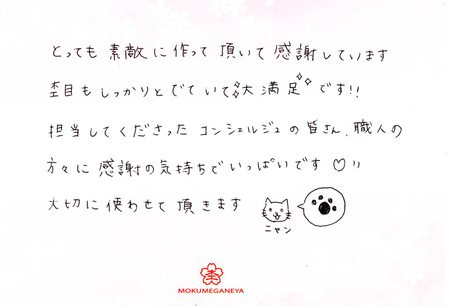 とっても 素敵 に 作って 頂いて 感謝しています
杢目も しっかりと でていて 大満足 です!!
担当してくださった コンシェルジュ の 皆さん、職人の
方々に 感謝の気持ちで いっぱいです ♡〃
大切に 使わせて 頂きます
ニャン
杢
MOKUMEGANEYA